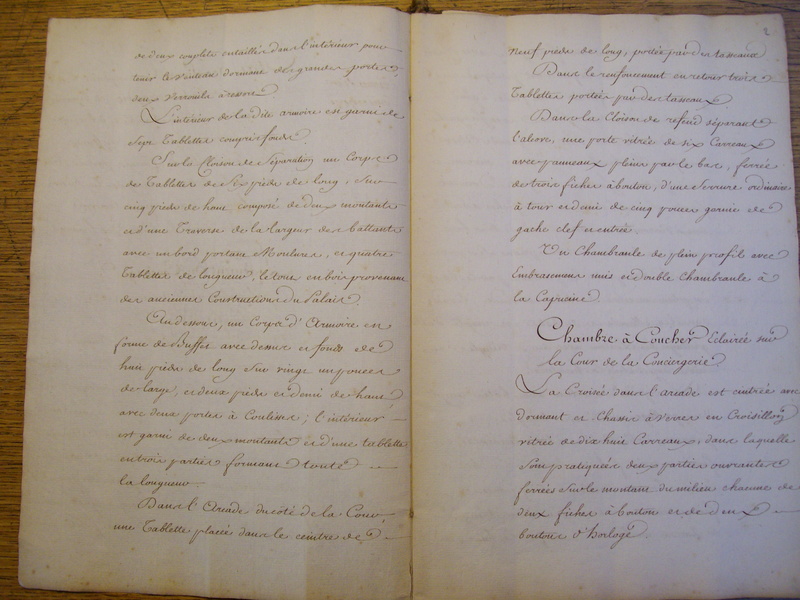 de deux couplets entaillés dans l'intérieur pour
tenir le venteau dormant des grandes portes,
deux verrouils à ressort.
L'intérieur de la dite armoire est garni de
sept Tablettes compris fonds.
Sur la Cloison de Séparation un Corps
de Tablettes de Six pieds de long, Sur
cinq pieds de haut composé de deux montants
et d'une Traverse de la largeur des battants
avec un bord portant Moulures, et quatre
Tablettes de longueur, le tout en bois provenant
des anciennes Constructions du Palais.
Au dessous, un Corps d'Armoire en
forme de Buffet avec dessus et fonds de
huit pieds de long Sur vingt un pouces
de large, et deux pieds et demi de haut,
avec deux portes à Coulisses; l'intérieur
est garni de deux montants et d'une tablette
en trois parties formant toute
la longueur.
Dans l'Arcade du côté de la Cour,
une Tablette placée dans le ceintre de
2
neuf pieds de long, portée par des tasseaux
Dans le renfoncement en retour trois
Tablettes portées par des tasseaux
Dans la Cloison de refend séparant
l'alcove, une porte vitrée de six Carreaux
avec panneaux pleins par le bas, ferrée
de trois fiches à bouton, d'une Serrure ordinaire
à tour et demi de cinq pouces garnie de
gache clef et entrée.
Un Chambranle de plein profil avec
Embrasement unis et double Chambranle à
la Capucine.
Chambre à Coucher Eclairée sur
la Cour de la Conciergerie.
La Croisée dans l'arcade est cintrée avec
dormant et Chassis à Verres en Croisillons
vitrée de dix huit Carreaux, dans laquelle
Sont pratiquées deux parties ouvrantes
ferrées Sur le montant du milieu chacune de
deux fiches à bouton et de deux
boutons d'horloge.